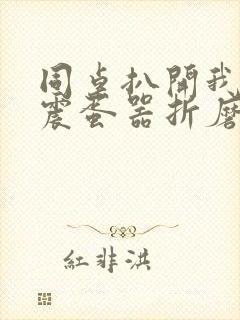 同桌扒開我
震蛋器折磨
紅非洪